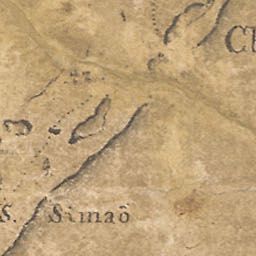 Ch
S. Simaõ